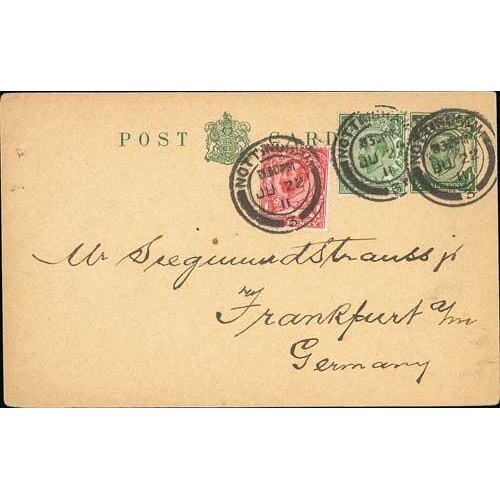 POST CARD
NOTTINGHAM
9.30PM
JU 22
11
3
NOTTINGHAM
9.30PM
JU 22
11
3
NOTTINGHAM
9.30PM
JU 22
11
3
Mr Siegmund Strauss jr
Frankfurt a/m
Germany